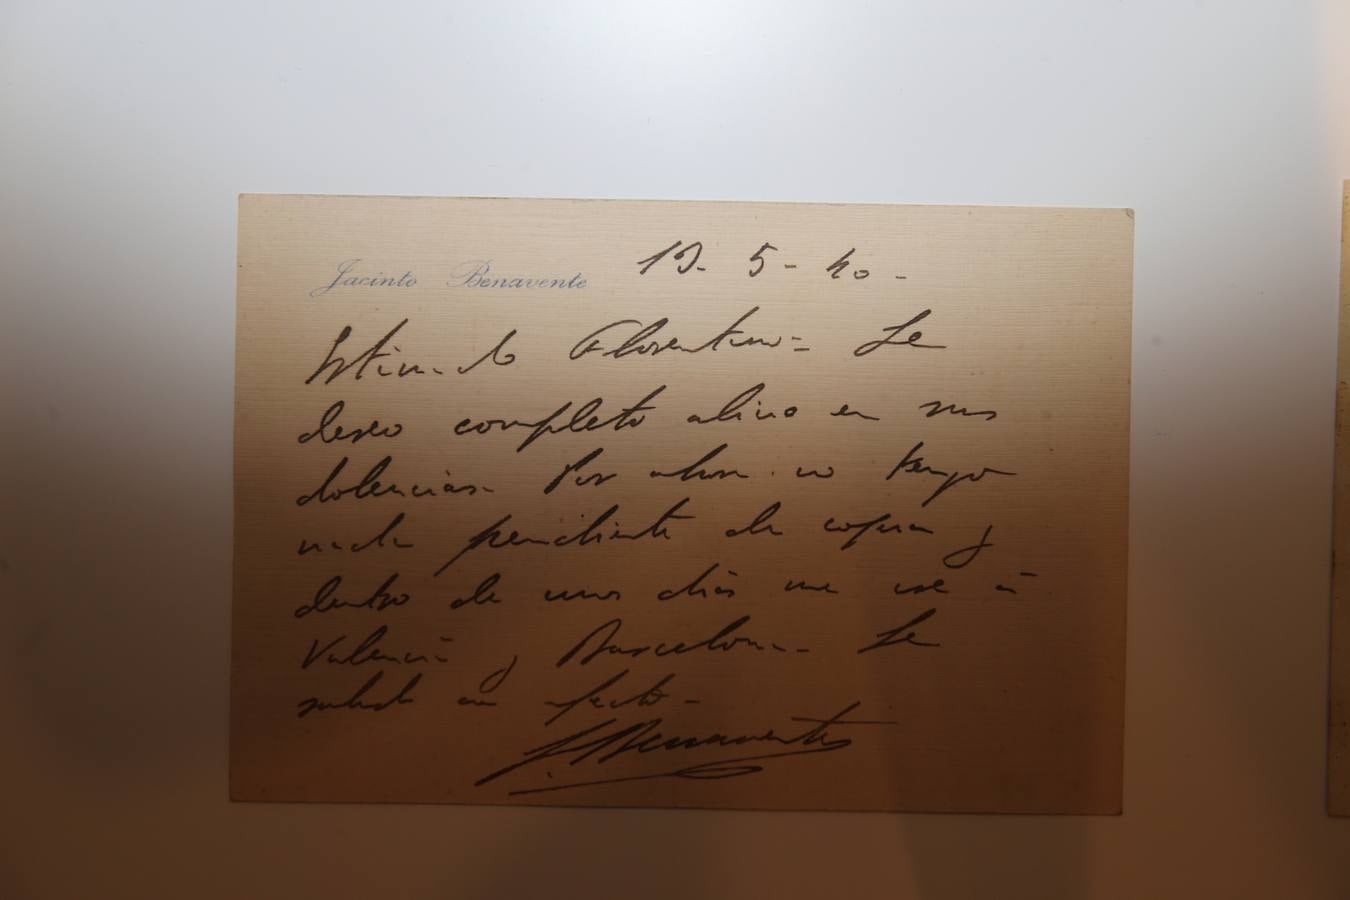 Jacinto Benavente 19-5-40-
Estimado Florentino = Le
deseo completo alivio en sus
dolencias. Por ahora no tengo
nada pendiente de copia y
dentro de unos días me iré á
Valencia y Barcelona. Le
saluda con afecto -
J. Benavente